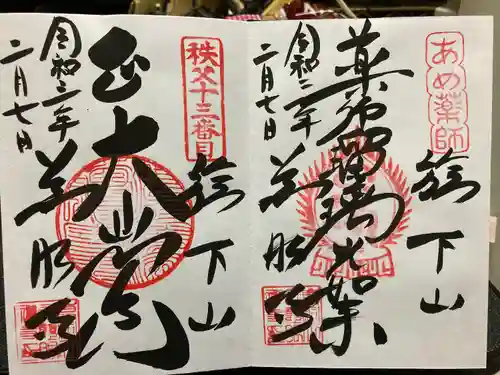 あめ薬師
旗下山
薬師瑠璃光如来
令和二年
二月七日
慈眼寺
秩父十三番目
旗下山
大
令和二年
二月七日
慈眼寺